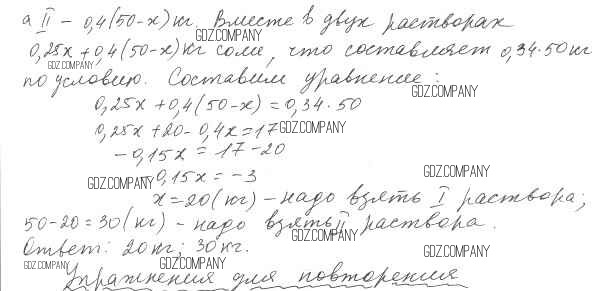 а II - 0,4(50-x) кг. Вместе в двух растворах
GDZ.COMPANY
0,25x + 0,4(50-x) кг соли, что составляет 0,34·50 кг
GDZ.COMPANY
GDZ.COMPANY
по условию. Составим уравнение:
GDZ.COMPANY
0,25x + 0,4(50-x) = 0,34·50
0,25x + 20 - 0,4x = 17 GDZ.COMPANY
-0,15x = 17-20
GDZ.COMPANY
GDZ.COMPANY -0,15x = -3
x = 20 (кг) - надо взять I раствора;
50-20=30 (кг) - надо взять II раствора.
GDZ.COMPANY
Ответ: 20 кг; 30 кг.
GDZ.COMPANY
GDZ.COMPANY GDZ.COMPANY
Упражнения для повторения